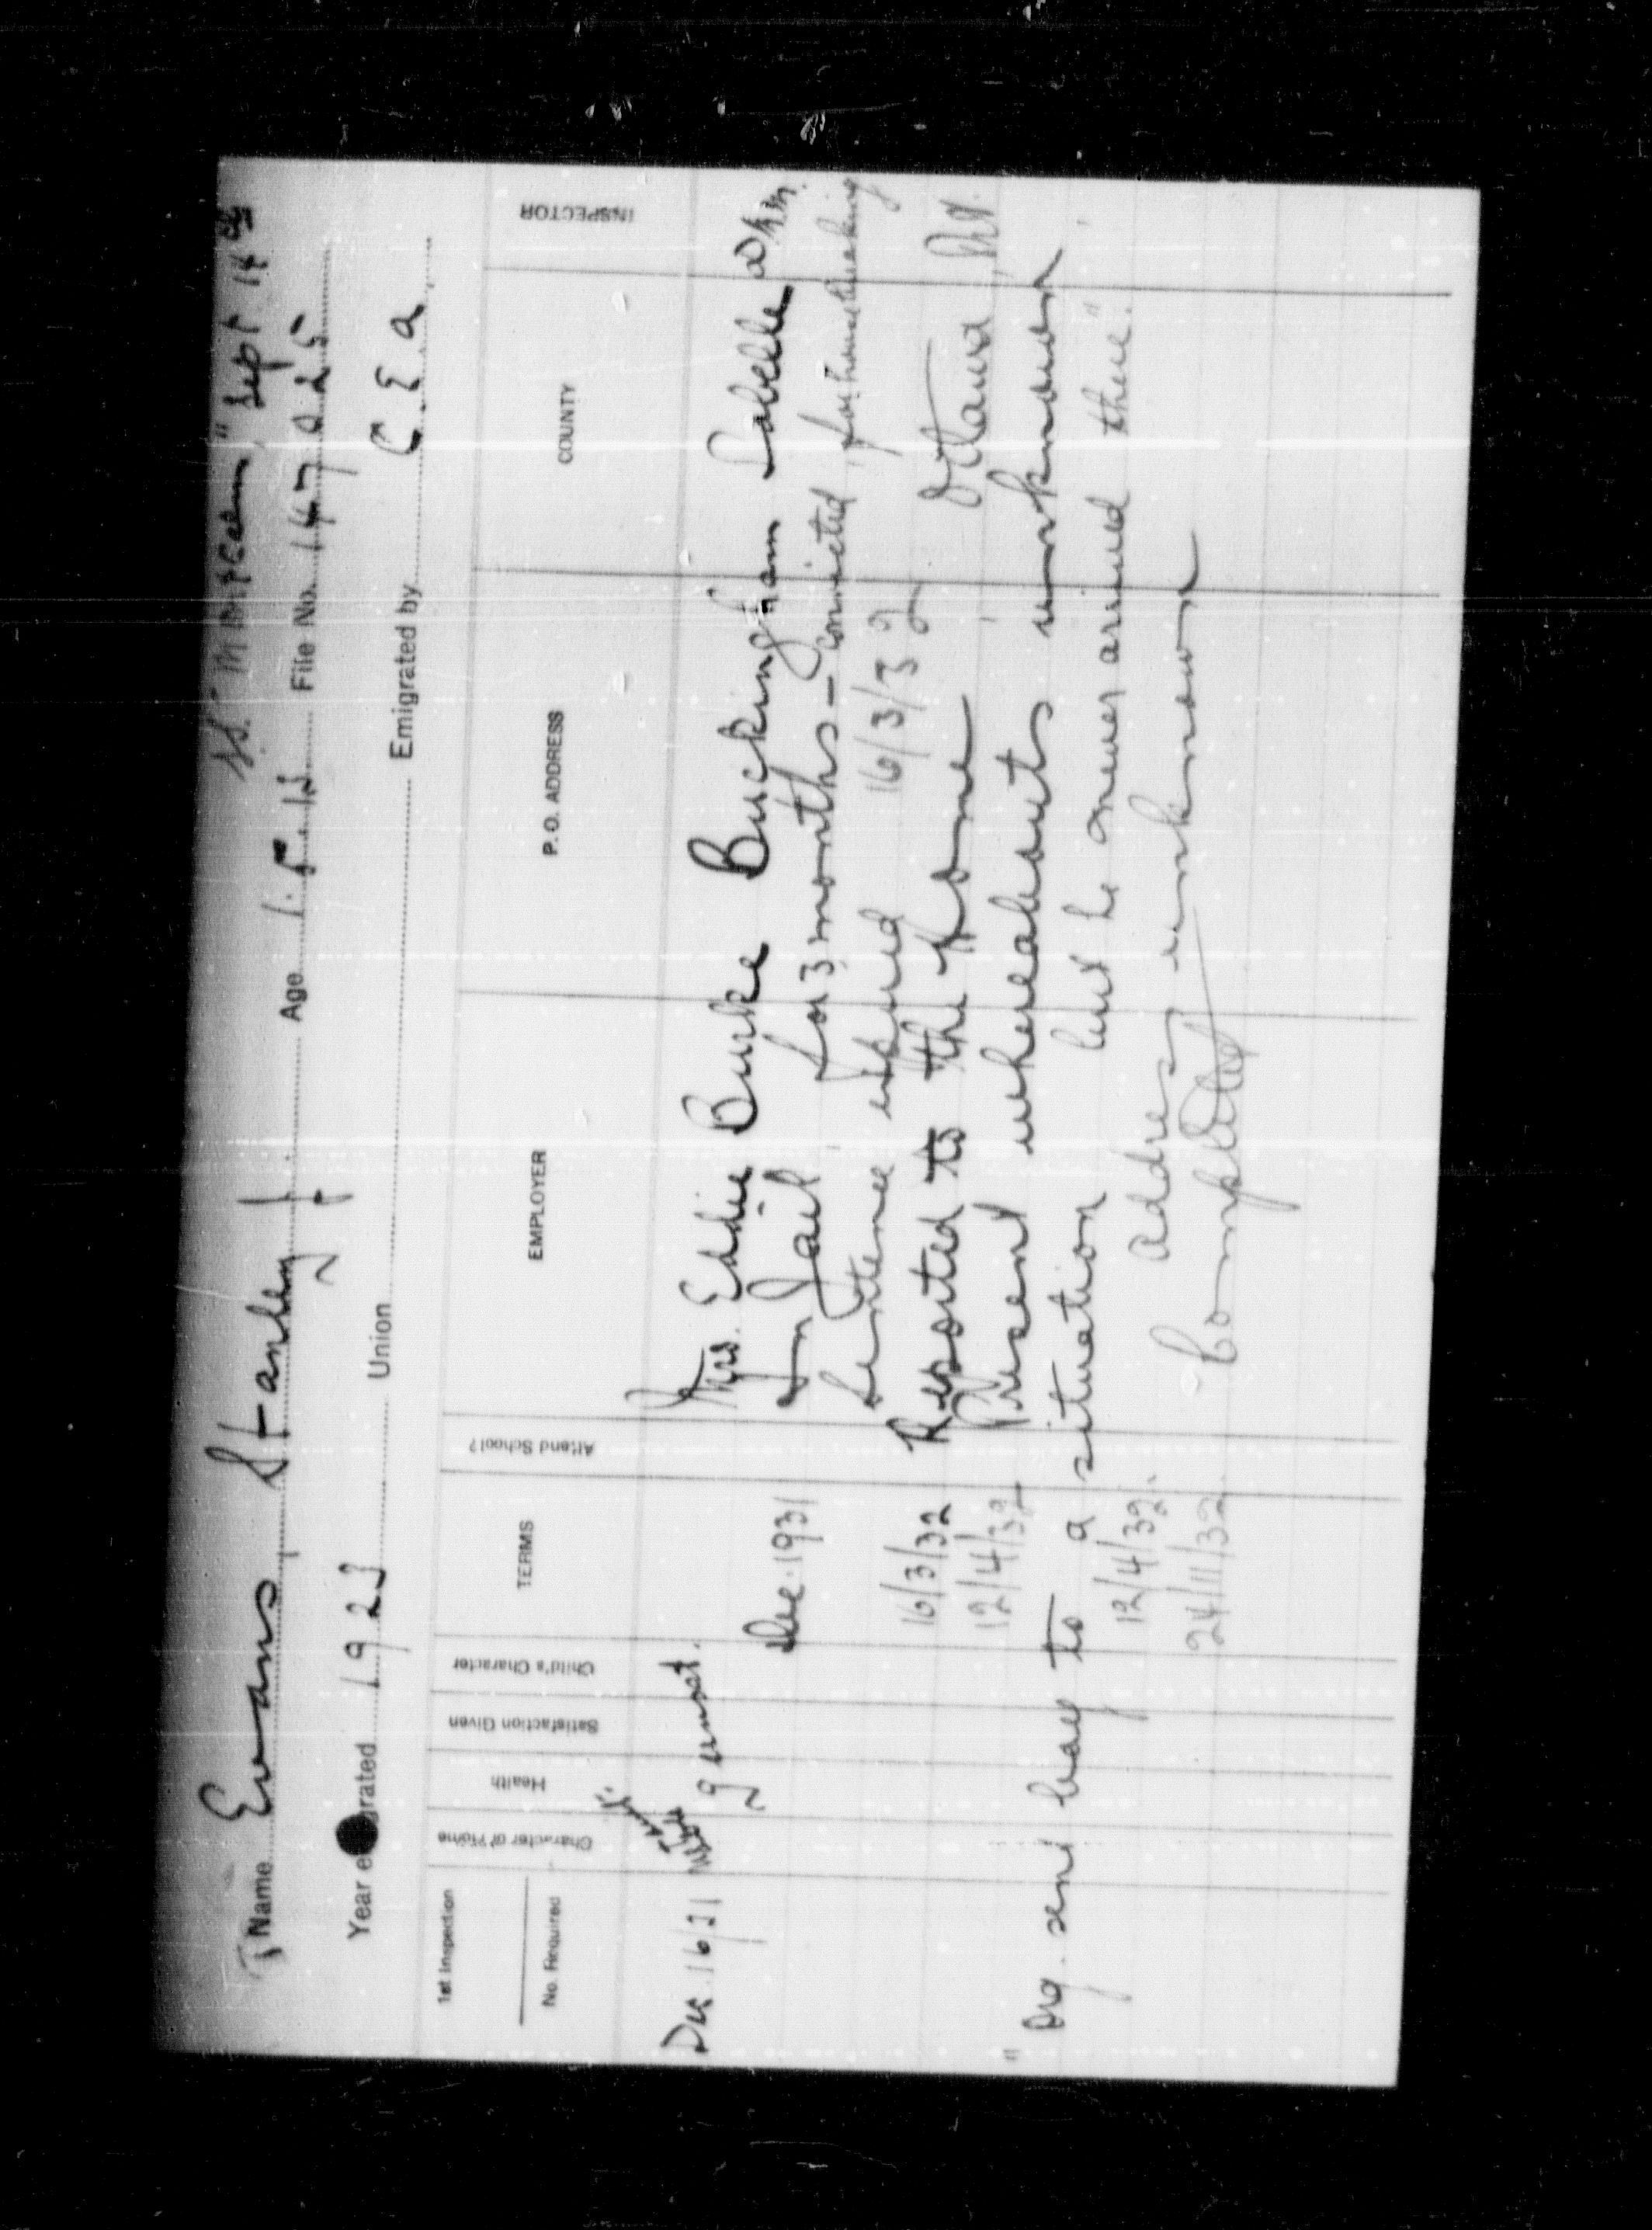 Name Evans, Stanley J. Age 1.5.15 File No. 147025
Sept 14th
Year e grated 1923 Union Emigrated by C.E.A.
1st Inspection
No. Required
Character of Home
Health
Satisfaction Given
Child's Character
TERMS
Attend School?
EMPLOYER
P. O. ADDRESS
COUNTY
INSPECTOR
Dec. 16/31 Mrs. Eddie Burke Buckingham Labelle
Dec. 1931 In Jail for 3 months - Convicted for housebreaking
Sentence expired 16/3/32
16/3/32 Reported to the Home Ottawa
12/4/32 Present whereabouts unknown
" Org. sent boy to a situation but he never arrived there."
12/4/32. address unknown
24/11/32 Completed